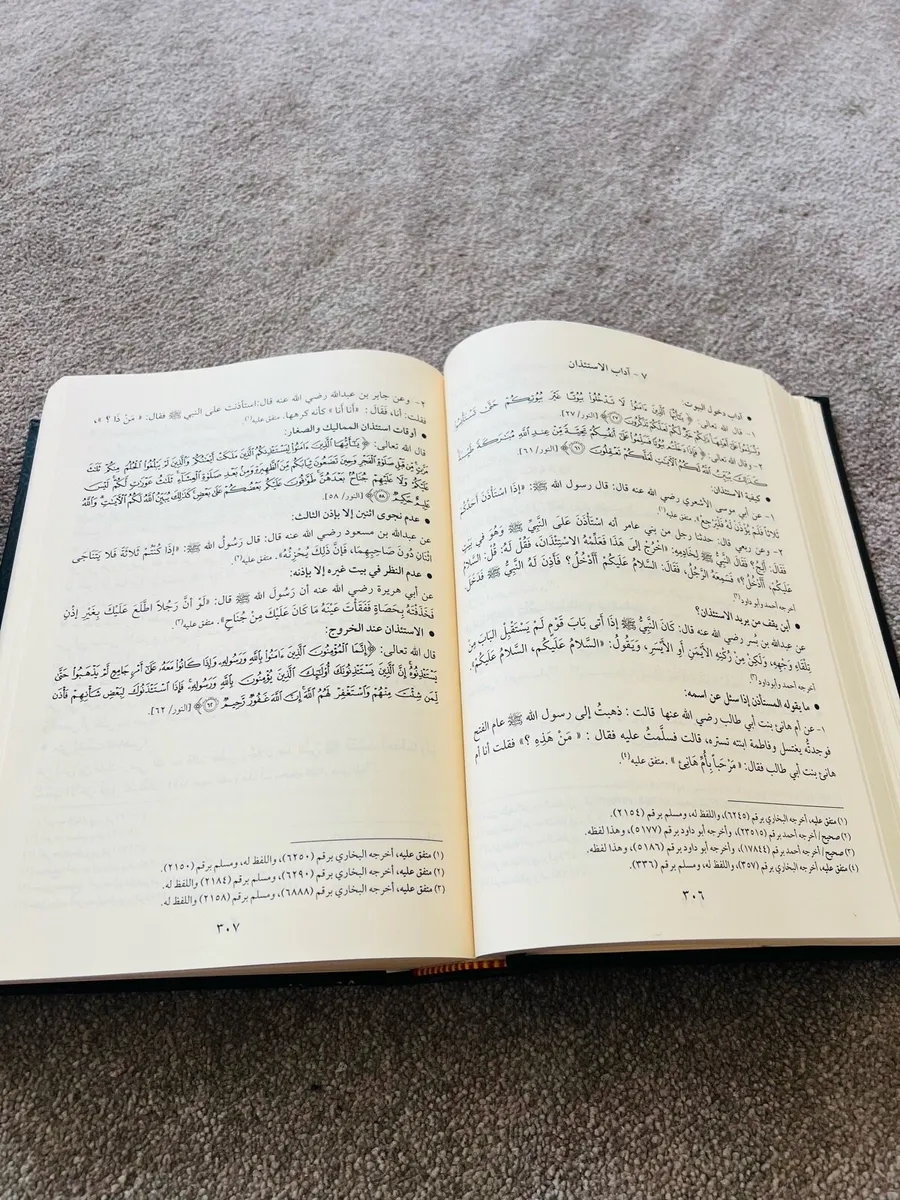 ٧ - آداب الاستئذان
• آداب دخول البيوت:
١- قال الله تعالى: ﴿يَٰٓأَيُّهَا ٱلَّذِينَ ءَامَنُوا۟ لَا تَدْخُلُوا۟ بُيُوتًا غَيْرَ بُيُوتِكُمْ حَتَّىٰ تَسْتَأْنِسُوا۟
وَتُسَلِّمُوا۟ عَلَىٰٓ أَهْلِهَا ذَٰلِكُمْ خَيْرٌ لَّكُمْ لَعَلَّكُمْ تَذَكَّرُونَ (٢٧)﴾ [النور/ ٢٧].
٢- وقال الله تعالى: ﴿فَإِذَا دَخَلْتُم بُيُوتًا فَسَلِّمُوا۟ عَلَىٰٓ أَنفُسِكُمْ تَحِيَّةً مِّنْ عِندِ ٱللَّهِ مُبَٰرَكَةً طَيِّبَةً
كَذَٰلِكَ يُبَيِّنُ ٱللَّهُ لَكُمُ ٱلْءَايَٰتِ لَعَلَّكُمْ تَعْقِلُونَ (٦١)﴾ [النور/ ٦١].
• كيفية الاستئذان:
١- عن أبي موسى الأشعري رضي الله عنه قال: قال رسول الله ﷺ: «إِذَا اسْتَأْذَنَ أَحَدُكُمْ
ثَلَاثاً فَلَمْ يُؤْذَنْ لَهُ فَلْيَرْجِعْ». متفق عليه(١).
٢- وعن ربعي قال: حدثنا رجل من بني عامر أنه استأذَنَ عَلَى النَّبِيِّ ﷺ وَهُوَ فِي بَيْتٍ
فَقَالَ: أَلِجُ؟ فَقَالَ النَّبِيُّ ﷺ لِخَادِمِهِ: «اخْرُجْ إِلَى هَذَا فَعَلِّمْهُ الاسْتِئْذَانَ، فَقُلْ لَهُ: قُلْ: السَّلامُ
عَلَيْكُمْ، أَأَدْخُلُ؟» فَسَمِعَهُ الرَّجُلُ، فَقَالَ: السَّلامُ عَلَيْكُمْ أَأَدْخُلُ؟ فَأَذِنَ لَهُ النَّبِيُّ ﷺ فَدَخَلَ.
أخرجه أحمد وأبو داود(٢).
• أين يقف من يريد الاستئذان؟
عن عبدالله بن بُسر رضي الله عنه قال: كَانَ النَّبِيُّ ﷺ إِذَا أَتَى بَابَ قَوْمٍ لَمْ يَسْتَقْبِلِ البَابَ مِنْ
تِلْقَاءِ وَجْهِهِ، وَلَكِنْ مِنْ رُكْنِهِ الأَيْمَنِ أَوِ الأَيْسَرِ، وَيَقُولُ: «السَّلامُ عَلَيْكُمْ، السَّلامُ عَلَيْكُمْ».
أخرجه أحمد وأبو داود(٣).
• ما يقوله المستأذن إذا سئل عن اسمه:
١- عن أم هانئ بنت أبي طالب رضي الله عنها قالت : ذهبتُ إلى رسول الله ﷺ عام الفتح
فوجدتُّه يغتسل وفاطمة ابنته تستره، قالت فسلَّمتُ عليه فقال : « مَنْ هَذِهِ ؟» فقلت أنا أم
هانئ بنت أبي طالب فقال: « مَرْحَباً بِأُمِّ هَانِئ » .متفق عليه(٤).
(١) متفق عليه، أخرجه البخاري برقم (٦٢٤٥)، واللفظ له، ومسلم برقم (٢١٥٤).
(٢) صحيح/ أخرجه أحمد برقم (٢٣٥١٥)، وأخرجه أبو داود برقم (٥١٧٧)، وهذا لفظه.
(٣) صحيح/ أخرجه أحمد برقم (١٧٨٤٤)، وأخرجه أبو داود برقم (٥١٨٦)، وهذا لفظه.
(٤) متفق عليه، أخرجه البخاري برقم (٣٥٧)، واللفظ له، ومسلم برقم (٣٣٦).
٣٠٦
٢- وعن جابر بن عبدالله رضي الله عنه قال: استأذنت على النبي ﷺ فقال: « مَنْ ذَا ؟ »،
فقلت: أنا، فَقَالَ : «أنا أنا » كأنه كرهها. متفق عليه(١).
• أوقات استئذان المماليك والصغار:
قال الله تعالى: ﴿يَٰٓأَيُّهَا ٱلَّذِينَ ءَامَنُوا۟ لِيَسْتَـْٔذِنكُمُ ٱلَّذِينَ مَلَكَتْ أَيْمَٰنُكُمْ وَٱلَّذِينَ لَمْ يَبْلُغُوا۟ ٱلْحُلُمَ مِنكُمْ ثَلَٰثَ
مَرَّٰتٍ مِّن قَبْلِ صَلَوٰةِ ٱلْفَجْرِ وَحِينَ تَضَعُونَ ثِيَابَكُم مِّنَ ٱلظَّهِيرَةِ وَمِنۢ بَعْدِ صَلَوٰةِ ٱلْعِشَآءِ ثَلَٰثُ عَوْرَٰتٍ لَّكُمْ لَيْسَ
عَلَيْكُمْ وَلَا عَلَيْهِمْ جُنَاحٌۢ بَعْدَهُنَّ طَوَّٰفُونَ عَلَيْكُم بَعْضُكُمْ عَلَىٰ بَعْضٍ كَذَٰلِكَ يُبَيِّنُ ٱللَّهُ لَكُمُ ٱلْءَايَٰتِ وَٱللَّهُ
عَلِيمٌ حَكِيمٌ (٥٨)﴾ [النور/ ٥٨].
• عدم نجوى اثنين إلا بإذن الثالث:
عن عبدالله بن مسعود رضي الله عنه قال: قال رَسُولُ الله ﷺ: «إِذَا كُنْتُمْ ثَلاثَةً فَلا يَتَنَاجَى
اثْنَانِ دُونَ صَاحِبِهِمَا، فَإِنَّ ذَلِكَ يُحْزِنُهُ». متفق عليه(٢).
• عدم النظر في بيت غيره إلا بإذنه:
عن أبي هريرة رضي الله عنه أن رَسُولَ الله ﷺ قال: «لَوْ أَنَّ رَجُلاً اطَّلَعَ عَلَيْكَ بِغَيْرِ إِذْنٍ
فَخَذَفْتَهُ بِحَصَاةٍ فَفَقَأْتَ عَيْنَهُ مَا كَانَ عَلَيْكَ مِنْ جُنَاحٍ». متفق عليه(٣).
• الاستئذان عند الخروج:
قال الله تعالى: ﴿إِنَّمَا ٱلْمُؤْمِنُونَ ٱلَّذِينَ ءَامَنُوا۟ بِٱللَّهِ وَرَسُولِهِۦ وَإِذَا كَانُوا۟ مَعَهُۥ عَلَىٰٓ أَمْرٍ جَامِعٍ لَّمْ يَذْهَبُوا۟ حَتَّىٰ
يَسْتَـْٔذِنُوهُ إِنَّ ٱلَّذِينَ يَسْتَـْٔذِنُونَكَ أُو۟لَٰٓئِكَ ٱلَّذِينَ يُؤْمِنُونَ بِٱللَّهِ وَرَسُولِهِۦ فَإِذَا ٱسْتَـْٔذَنُوكَ لِبَعْضِ شَأْنِهِمْ فَأْذَن
لِّمَن شِئْتَ مِنْهُمْ وَٱسْتَغْفِرْ لَهُمُ ٱللَّهَ إِنَّ ٱللَّهَ غَفُورٌ رَّحِيمٌ (٦٢)﴾ [النور/ ٦٢].
(١) متفق عليه، أخرجه البخاري برقم (٦٢٥٠)، واللفظ له، ومسلم برقم (٢١٥٠).
(٢) متفق عليه، أخرجه البخاري برقم (٦٢٩٠)، ومسلم برقم (٢١٨٤) واللفظ له.
(٣) متفق عليه، أخرجه البخاري برقم (٦٨٨٨)، ومسلم برقم (٢١٥٨) واللفظ له.
٣٠٧